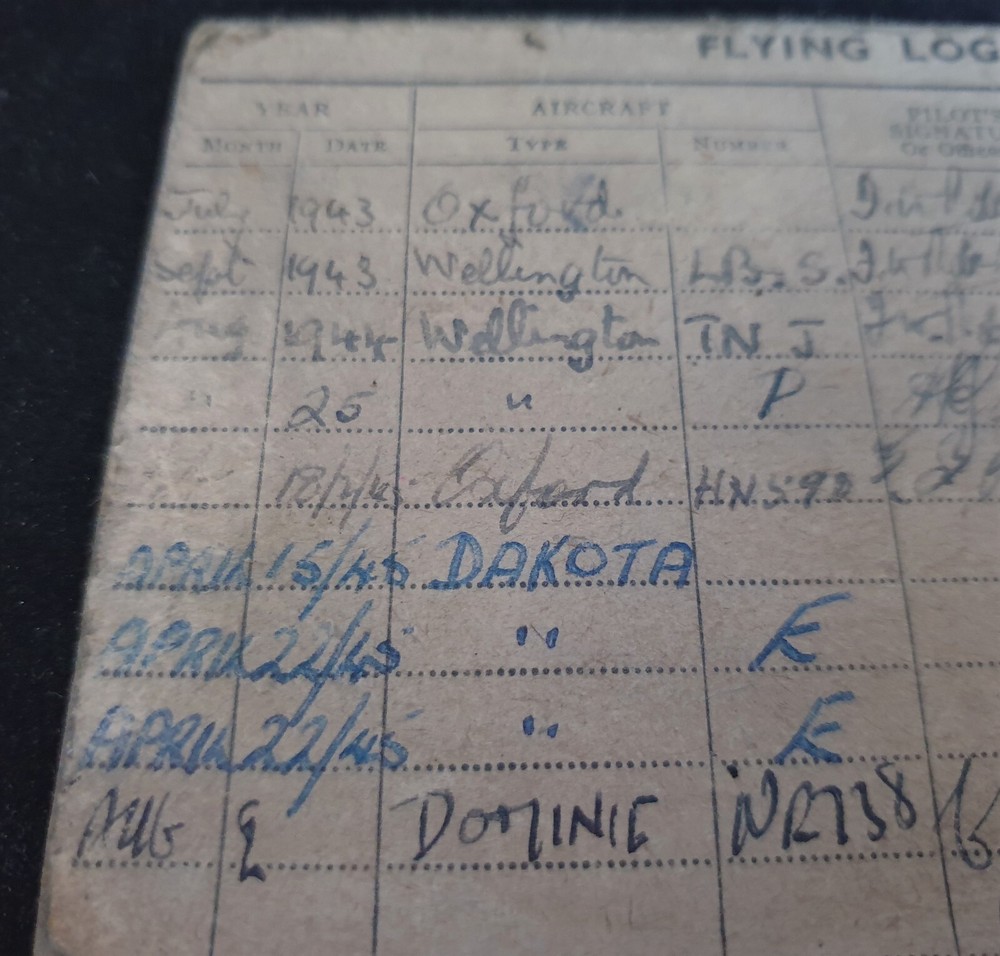 FLYING LOG
YEAR AIRCRAFT PILOT'S SIGNATU
MONTH DATE TYPE NUMBER Or Othe
July 1943 Oxford
Sept 1943 Wellington L.B. S.
Aug 1944 Wellington TN J
" 25 " P
Oxford HN592
APRIL 15/45 DAKOTA
APRIL 22/45 " E
APRIL 22/45 " E
AUG DOMINIE NR738